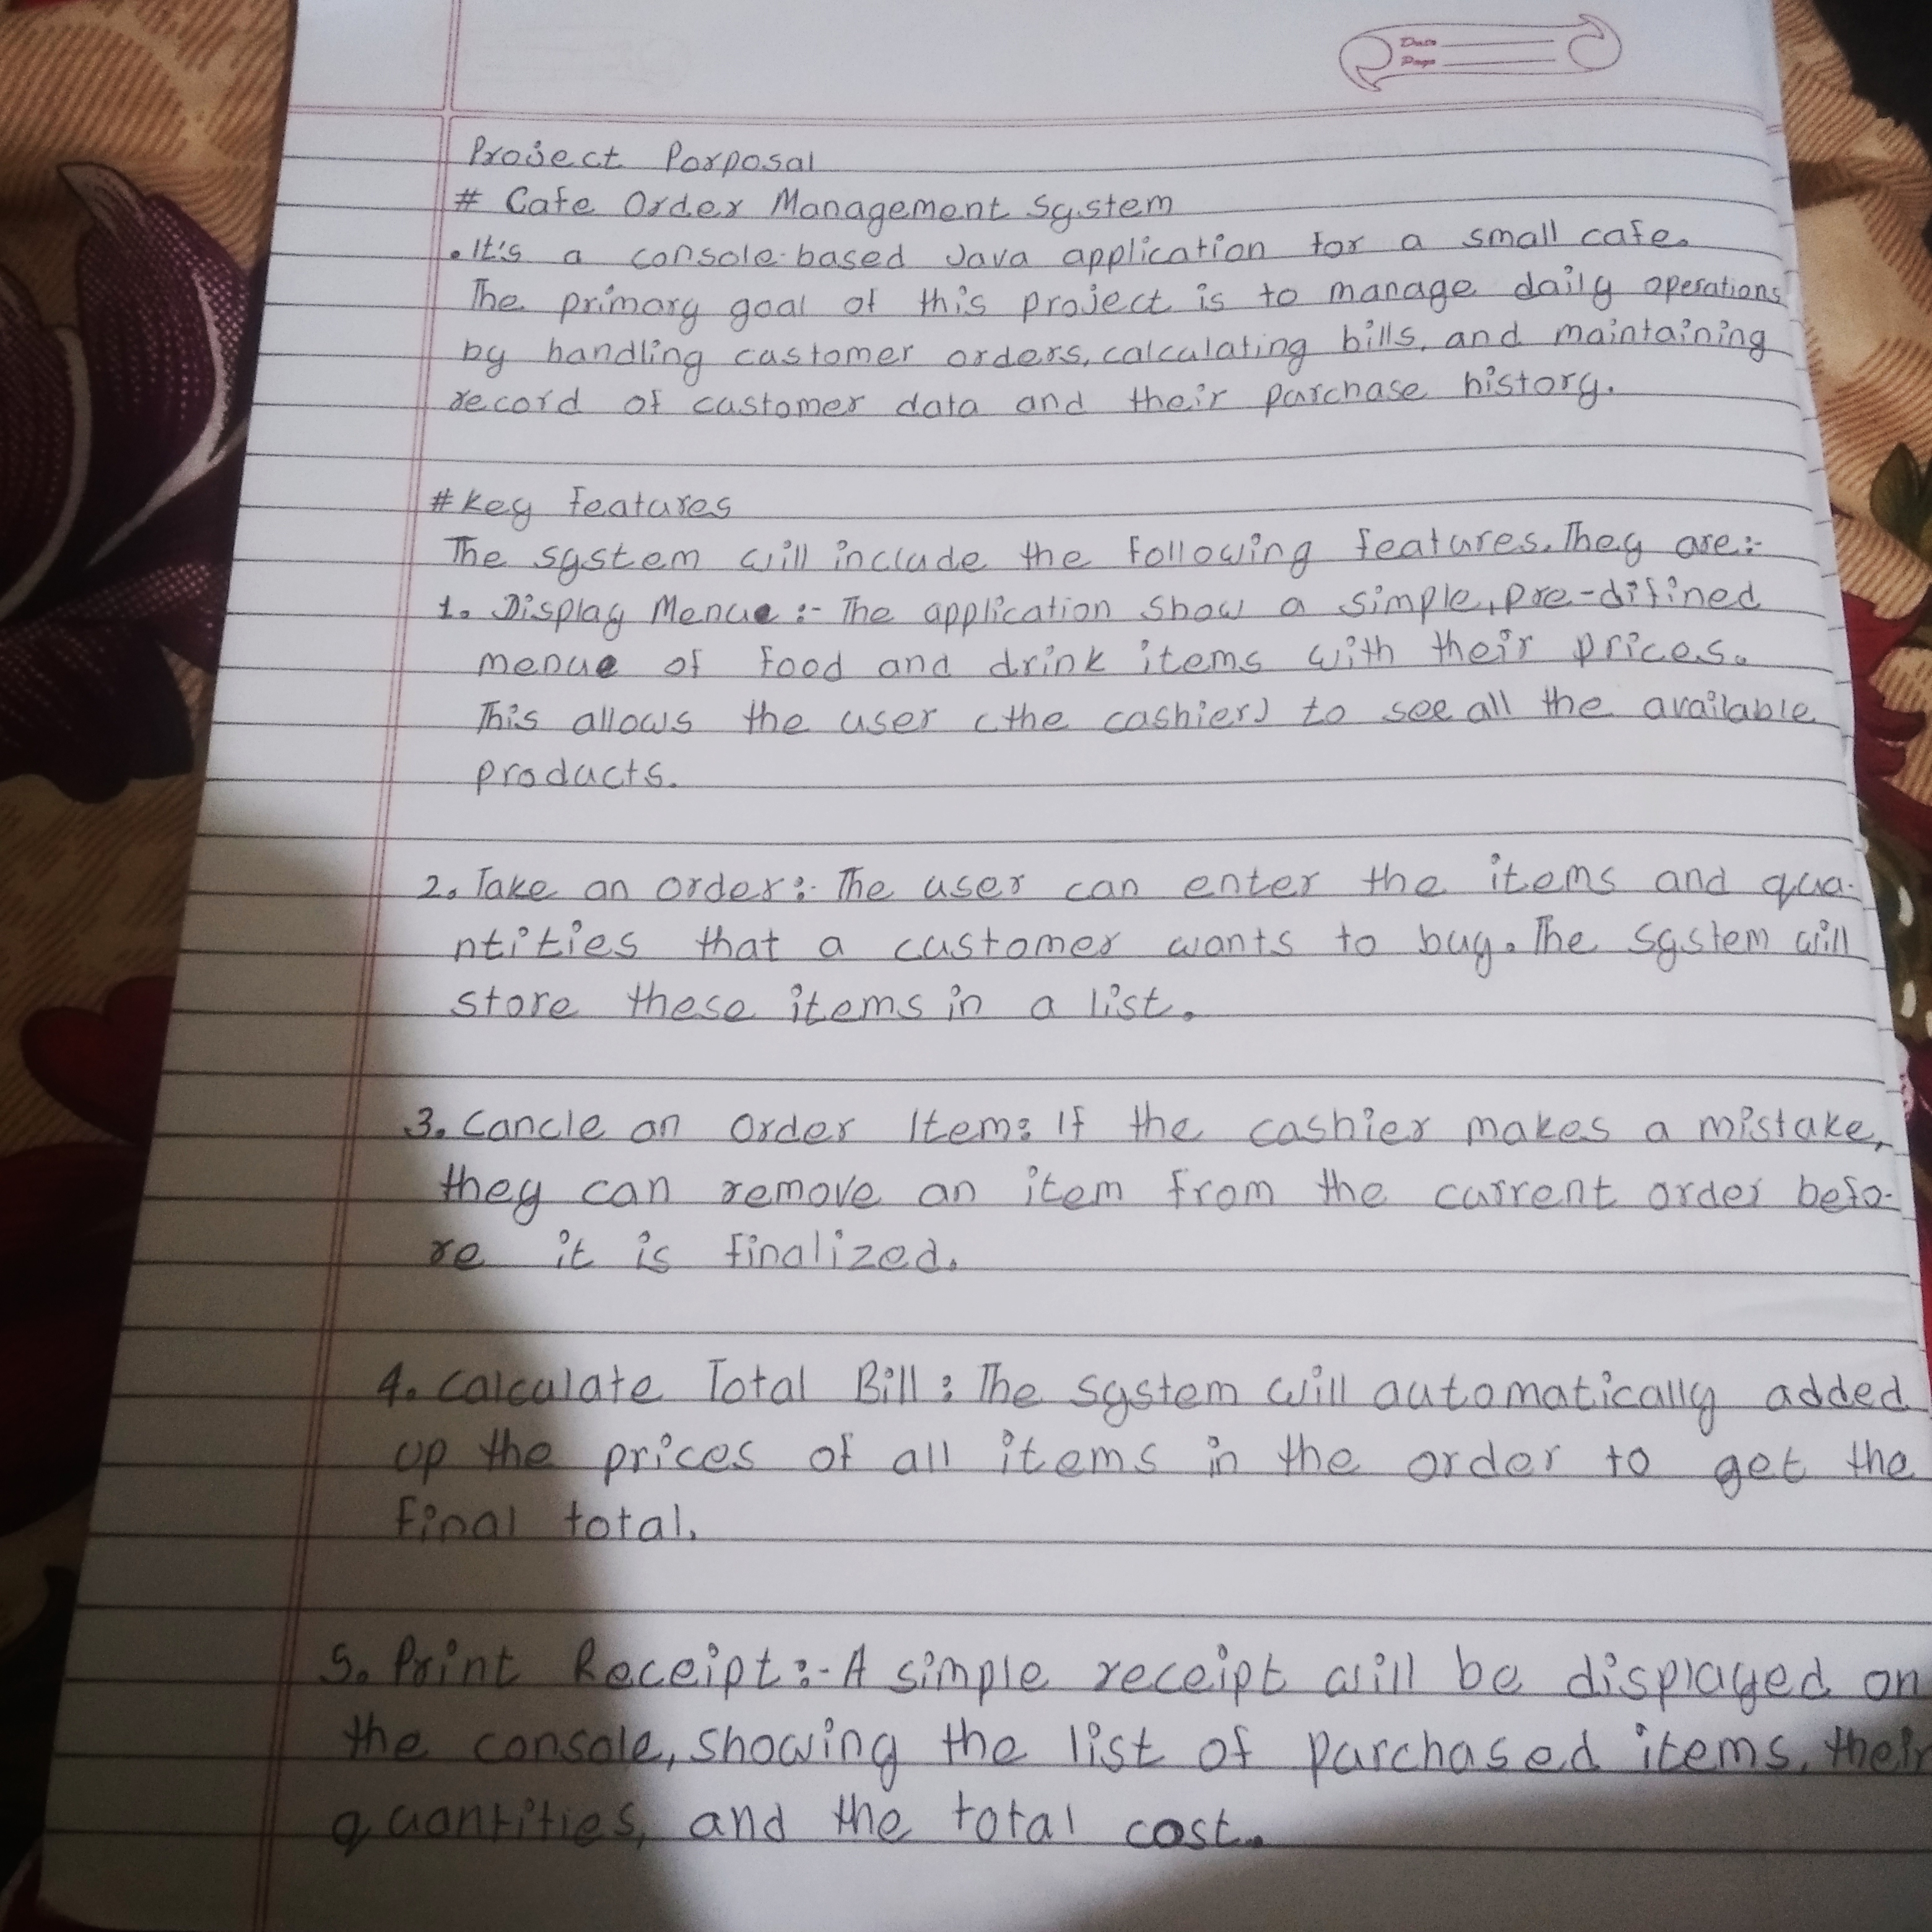 Date
Page
Project Porposal
# Cafe Order Management System
. It's a console-based Java application for a small cafe.
The primary goal of this project is to manage daily operations
by handling customer orders, calculating bills, and maintaining
record of customer data and their purchase history.
# Key features
The system will include the following features. They are:-
1. Display Menue :- The application show a simple, pre-difined
menue of food and drink items with their prices.
This allows the user (the cashier) to see all the available
products.
2. Take an order:- The user can enter the items and qua-
ntities that a customer wants to buy. The system will
store these items in a list.
3. Cancle an Order Item: If the cashier makes a mistake,
they can remove an item from the current order befo-
re it is finalized.
4. Calculate Total Bill: The system will automatically added
up the prices of all items in the order to get the
final total.
5. Print Receipt:- A simple receipt will be displayed on
the console, showing the list of purchased items, their
quantities, and the total cost.